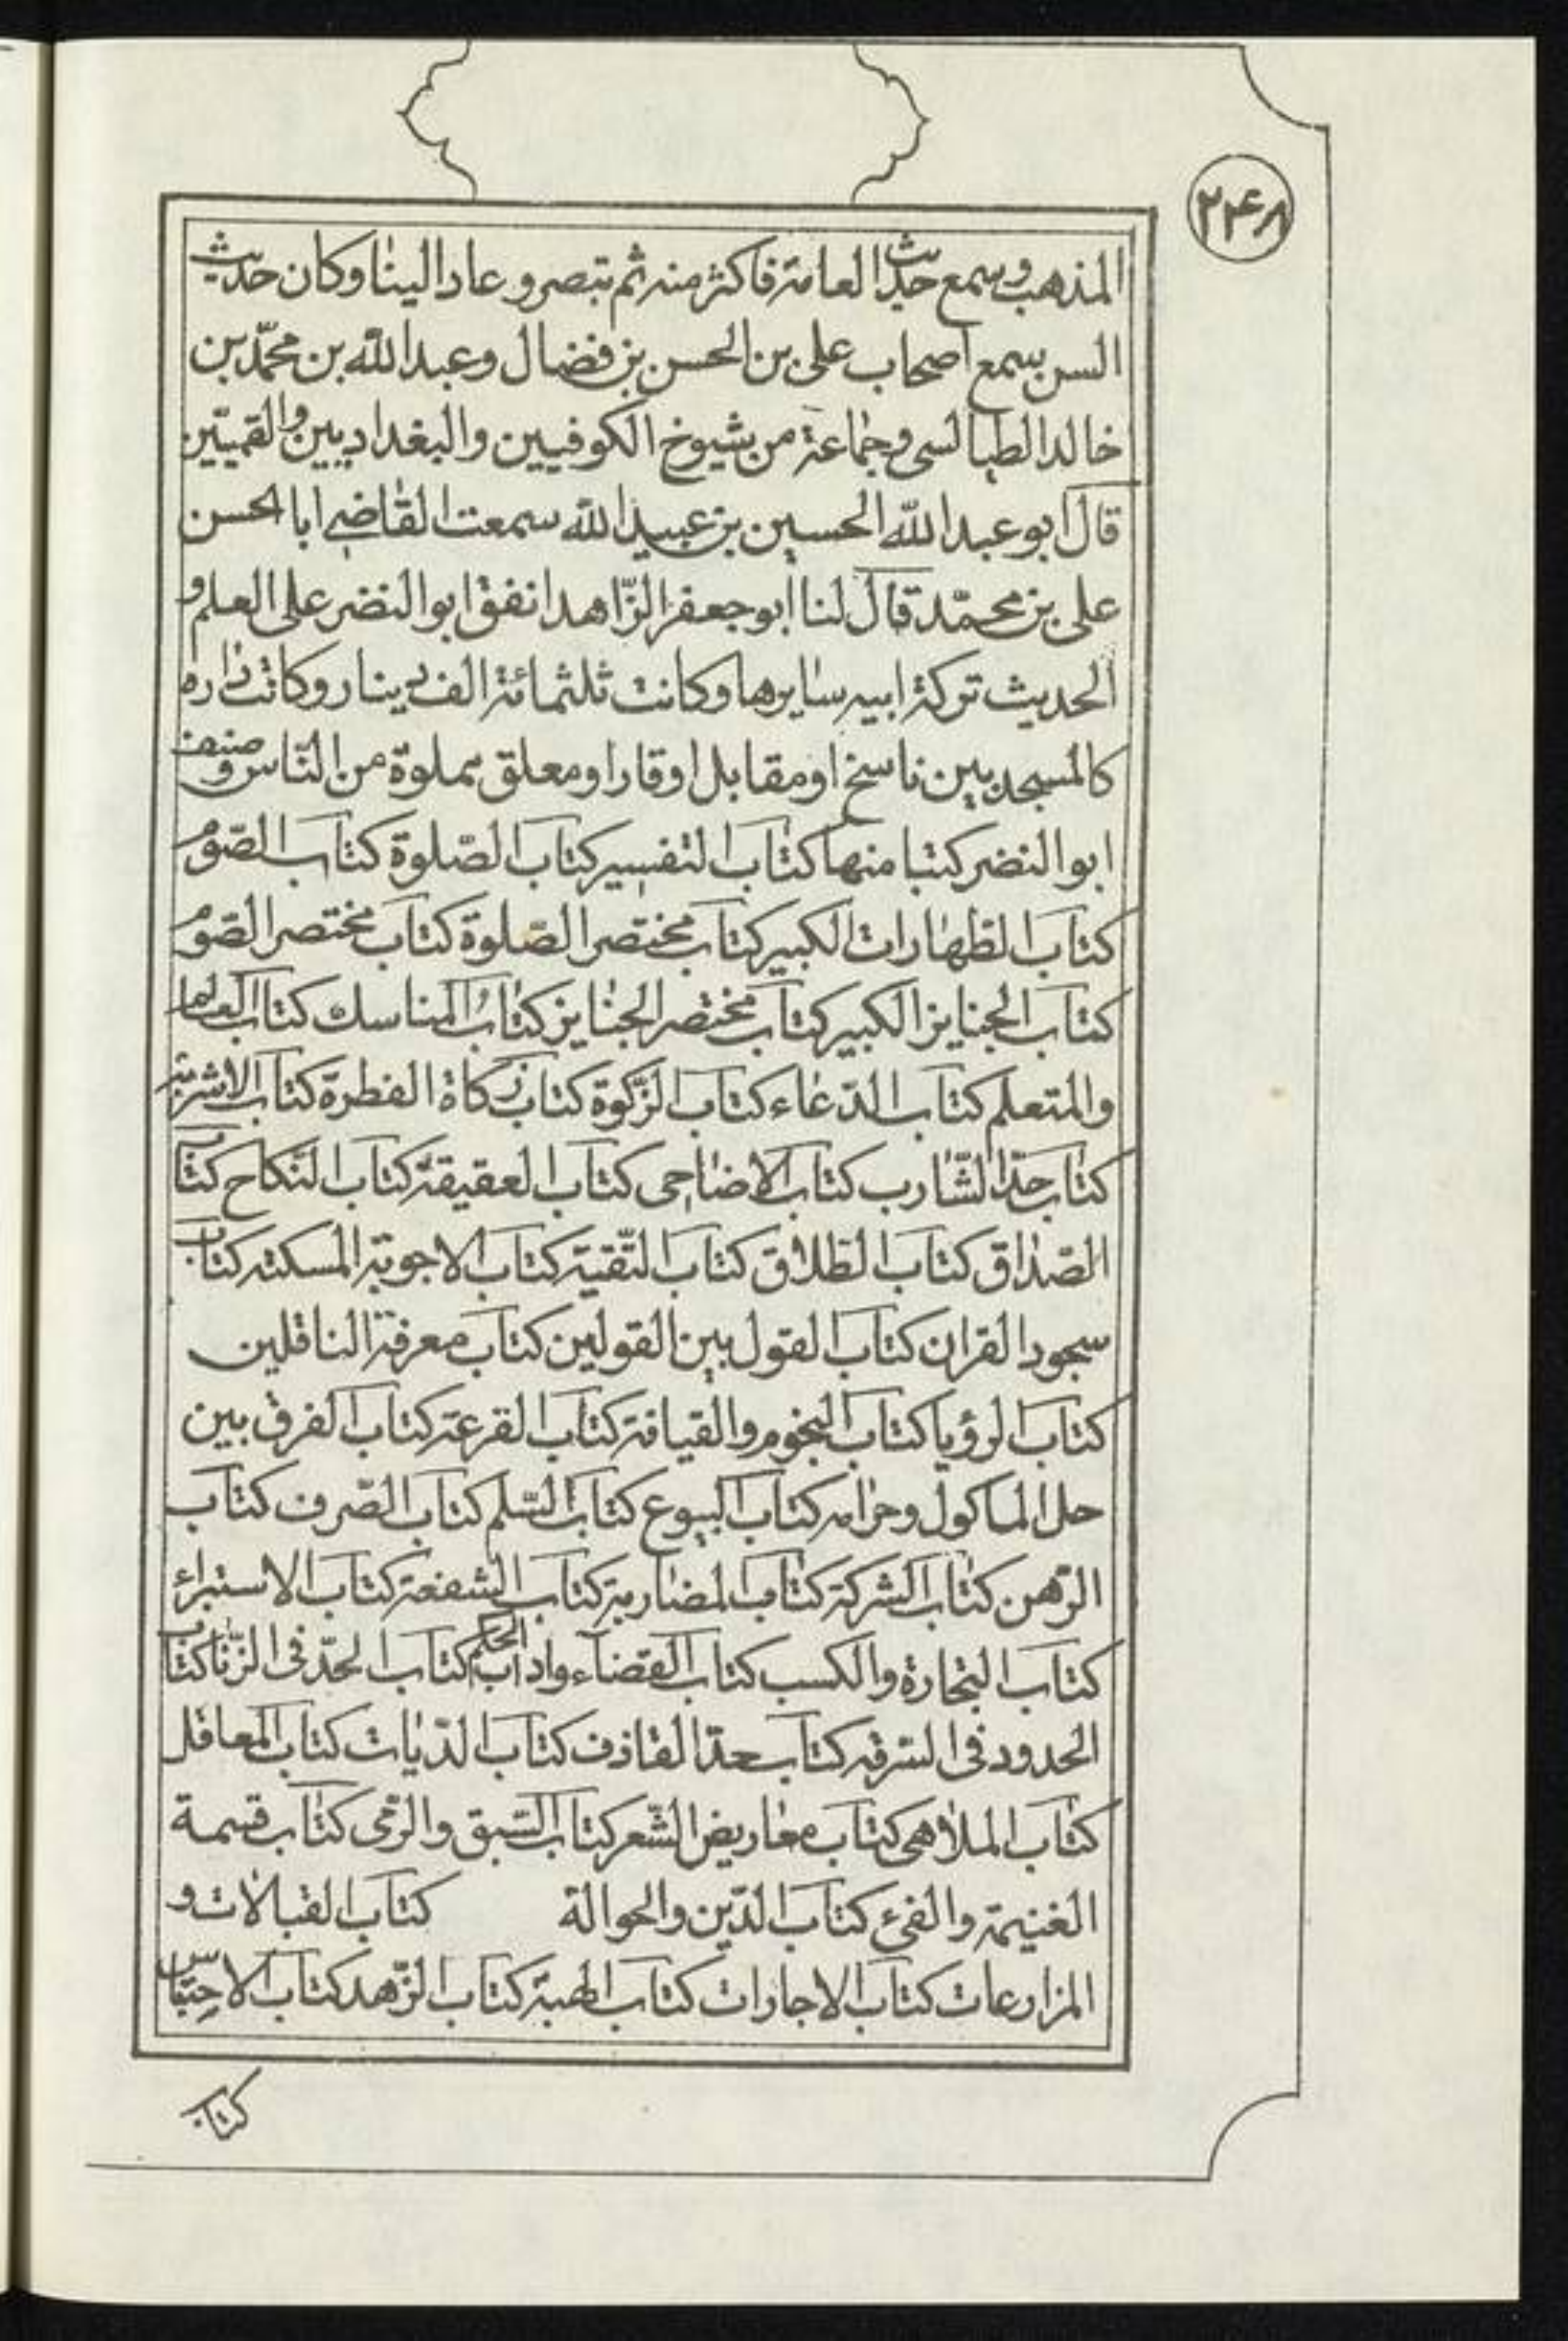 ۲۴۸
المذهب وسمع حديث العامة فاكثر منه ثم تبصر وعاد الينا وكان حديث
السن سمع اصحاب على بن الحسن بن فضال وعبد الله بن محمّد بن
خالد الطيالسى وجماعة من شيوخ الكوفيين والبغداديين والقميّين
قال ابو عبد الله الحسين بن عبيد الله سمعت القاضى ابا الحسن
على بن محمّد قال لنا ابو جعفر الزّاهد انفق ابو النضر على العلم و
الحديث تركة ابيه سايرها وكانت ثلثمائة الف دينار وكانت داره
كالمسجد بين ناسخ او مقابل او قار او معلق مملوة من النّاس وصنف
ابو النضر كتبا منها كتاب التفسير كتاب الصّلوة كتاب الصّوم
كتاب الطهارات الكبير كتاب مختصر الصّلوة كتاب مختصر الصّوم
كتاب الجنايز الكبير كتاب مختصر الجنايز كتاب المناسك كتاب العالم
والمتعلم كتاب الدّعاء كتاب الزّكوة كتاب زكاة الفطرة كتاب الاشربة
كتاب حدّ الشّارب كتاب الاضاحى كتاب العقيقة كتاب النّكاح كتاب
الصّداق كتاب الطلاق كتاب التّقيّة كتاب الاجوبة المسكتة كتاب
سجود القران كتاب القول بين القولين كتاب معرفة الناقلين
كتاب الرؤيا كتاب النجوم والقيافة كتاب القرعة كتاب الفرق بين
حل الماكول وحرامه كتاب البيوع كتاب السّلم كتاب الصّرف كتاب
الرّهن كتاب الشركة كتاب المضاربة كتاب الشفعة كتاب الاستبراء
كتاب التجارة والكسب كتاب القضاء واداب الحكم كتاب الحدّ فى الزّنا كتاب
الحدود فى السّرقة كتاب حدّ القاذف كتاب الدّيات كتاب المعاقل
كتاب الملاهى كتاب معاريض الشّعر كتاب السّبق والرّمى كتاب قسمة
الغنيمة والفىء كتاب الدّين والحوالة كتاب القبالات و
المزارعات كتاب الاجارات كتاب الهبة كتاب الزّهد كتاب الاحتباس
كتاب